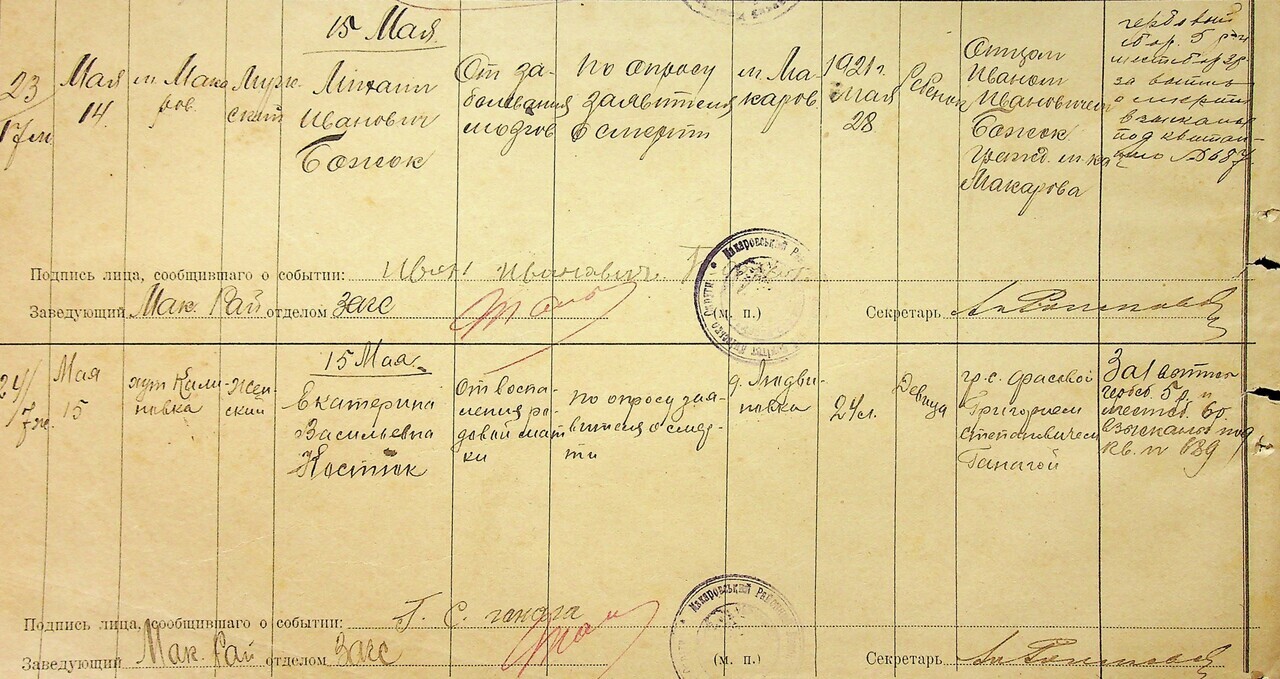 15 Мая.
23
17 м
Мая
14.
м Мака
ров.
Муж
ский
Иванович
Божок
От за-
болевания
мозгов
по опросу
заявителя
о смерти
м Ма-
каров.
1921 г.
мая
28
Ребенок
Отцом
Иваном
Ивановичем
Божок
гражд. м-ка
Макарова
гербовый
сбор. 5 р
мест сбор
о смерти
взыскано
под квитан-
цию № 687
Подпись лица, сообщившаго о событии: Иван Иванович.
Заведующий Мак. Рай отделом Загс
(м. п.)
Секретарь
Макаровський
15 Мая.
24/
7ж
Мая
15
хут Кали-
новка
Жен-
ский
Екатерина
Васильевна
Костюк
От воспа-
ления ро-
довой мат
ки
по опросу зая-
вителя о смер-
ти
д. Людви-
новка
24 л.
Девица
гр. с. Фасовой
Григорием
Степановичем
Ганагой
За 1 вотись
гербсб. 5 р. и
местсб.
взыскано под
кв. н 689
Подпись лица, сообщившаго о событии: Г. С.
Заведующий Мак. Рай отделом Загс
(м. п.)
Секретарь
Макаровський Район